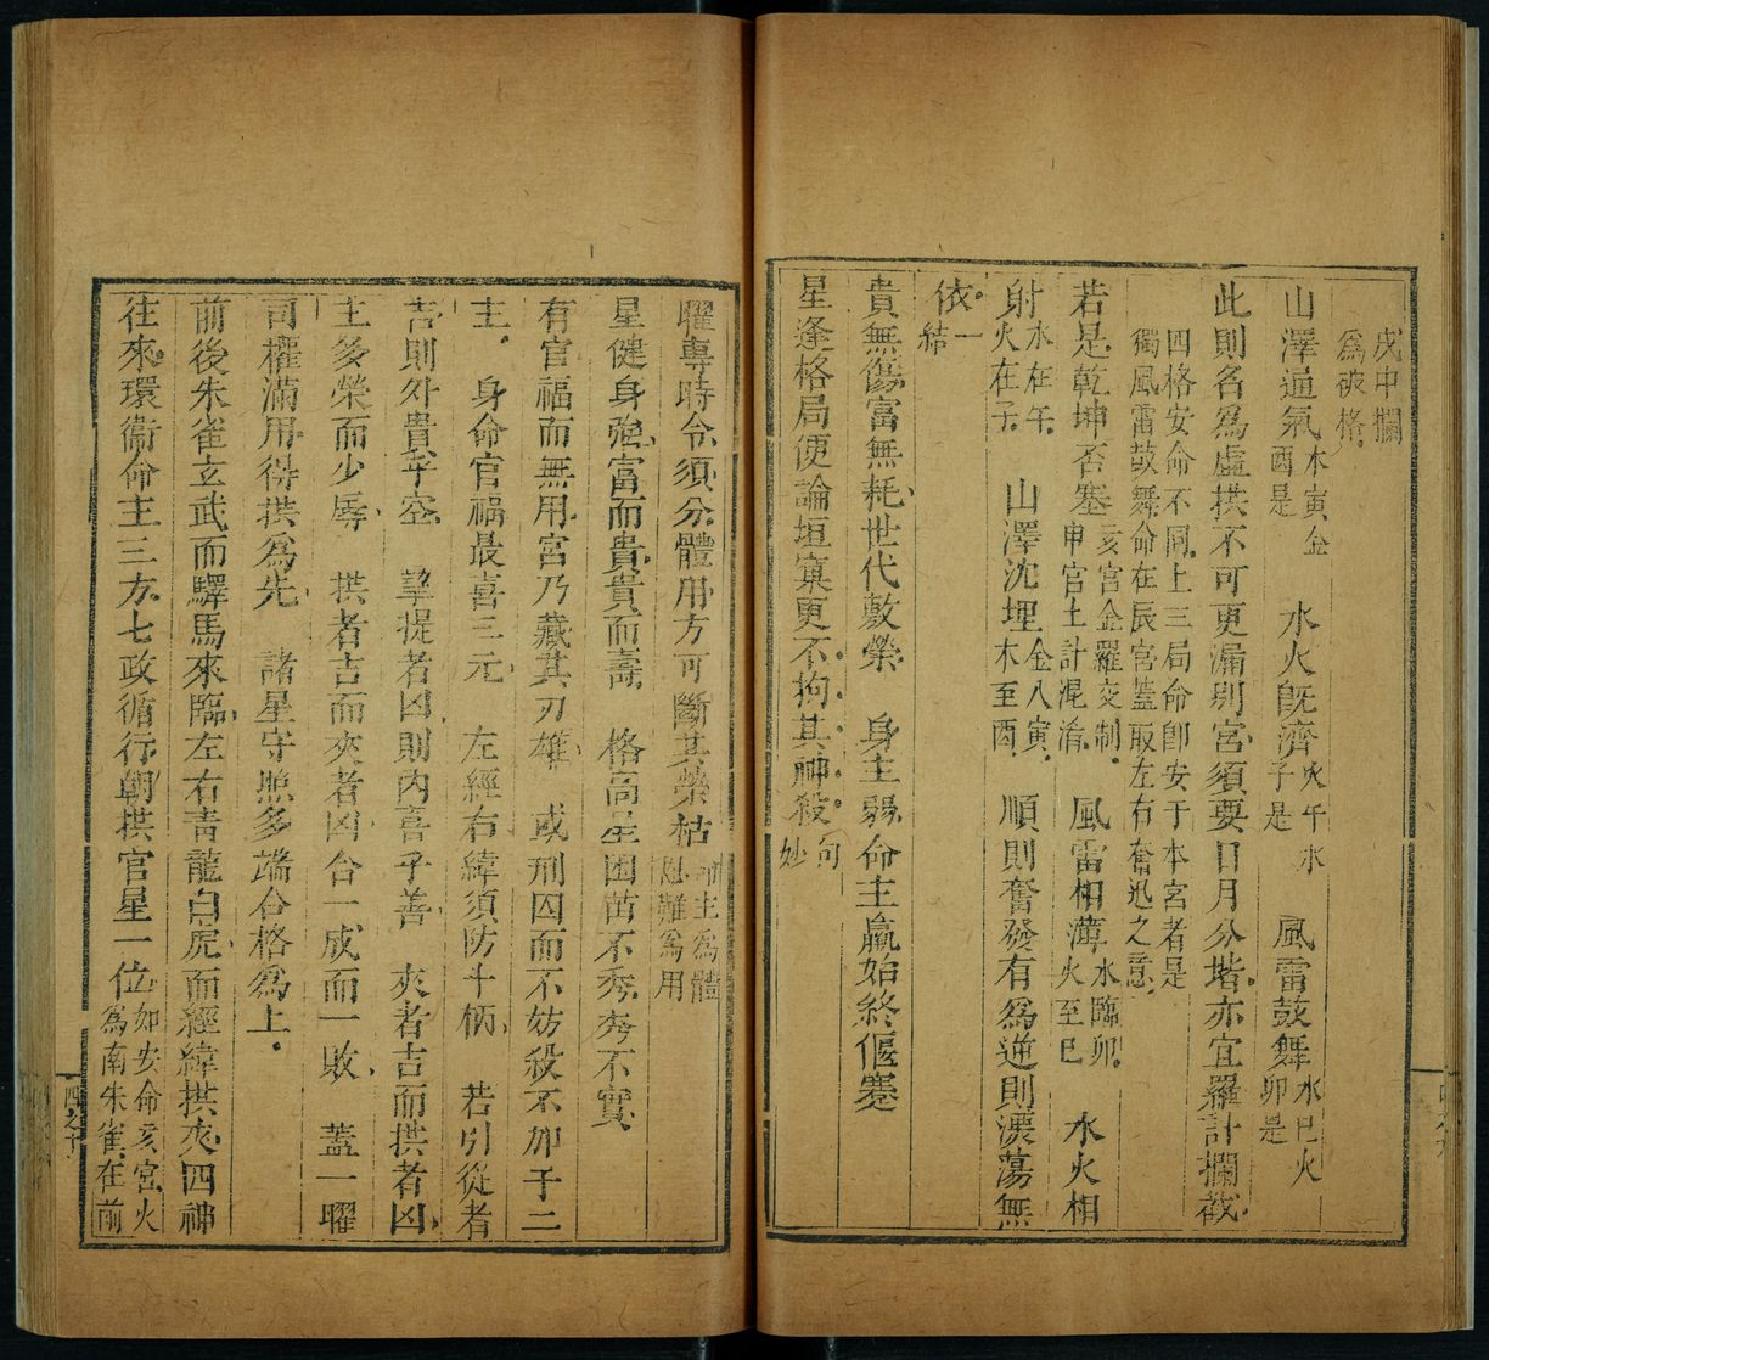 戌中攔
為破格
山澤通氣木寅金酉是　水火既濟火午水子是　風雷鼓舞水巳火卯是
此則名爲虛拱不可更漏別宮須要日月分堦亦宜羅計攔截
四格安命不同上三局命卽安于本宮者是
獨風雷鼓舞命在辰宮蓋取左右奮迅之意
若是乾坤否塞亥宮金羅交制申官土計混淆　風雷相薄水臨卯火至巳　水火相
射水在午火在子　山澤沈埋金入寅木至酉　順則奮發有爲逆則漂蕩無
依一結
貴無傷富無耗世代敷榮　身主弱命主贏始終偃蹇
星逢格局便論垣窠更不拘其神殺句妙
曜專時令須分體用方可斷其榮枯命主爲體恩難爲用
星健身強富而貴貴而壽　格高星困苗不秀秀不實
有官福而無用宮乃藏其刃雄　或刑囚而不妨殺不加于二
主　身命官福最喜三元　左經右緯須防斗柄　若引從者
吉則外貴年空　挈提者凶則内喜子善　夾者吉而拱者凶
主多榮而少辱　拱者吉而夾者凶合一成而一敗　蓋一曜
司權滿用得拱爲先　諸星守照多端合格爲上
前後朱雀玄武而驛馬來臨左右青龍白虎而經緯拱夾四神
往來環衞命主三方七政循行朝拱官星一位如安命亥宮火爲南朱雀在前
四之十